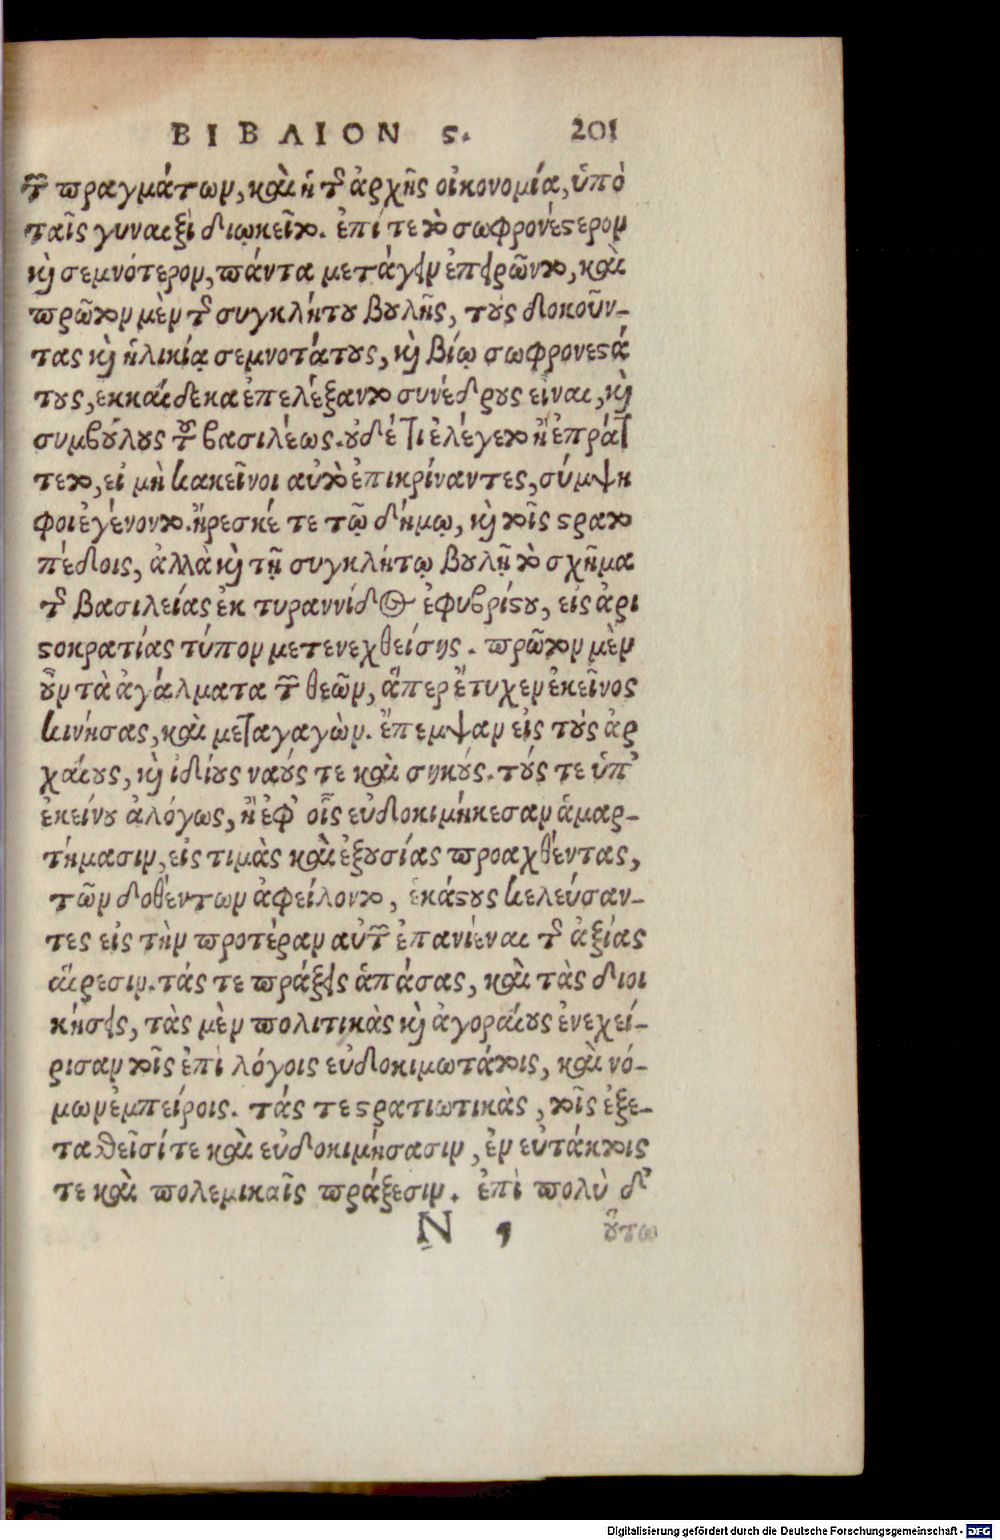 ΒΙΒΛΙΟΝ ϛ. 201
τῶν πραγμάτων, καὶ ἡ τῆς ἀρχῆς οἰκονομία, ὑπὸ
ταῖς γυναιξὶ διῳκεῖτο. ἐπί τε τὸ σωφρονέστερον
καὶ σεμνότερον, πάντα μετάγειν ἐπειρῶντο, καὶ
πρῶτον μὲν τῆς συγκλήτου βουλῆς, τοὺς δοκοῦν-
τας καὶ ἡλικίᾳ σεμνοτάτους, καὶ βίῳ σωφρονεστά
τους, ἑκκαίδεκα ἐπελέξαντο συνέδρους εἶναι, καὶ
συμβούλους τοῦ βασιλέως. οὐδέ τι ἐλέγετο ἢ ἐπράτ
τετο, εἰ μὴ κακεῖνοι αὐτὸ ἐπικρίναντες, σύμψη
φοι ἐγένοντο. ἤρεσκέ τε τῷ δήμῳ, καὶ τοῖς στρατο
πέδοις, ἀλλὰ καὶ τῇ συγκλήτῳ βουλῇ τὸ σχῆμα
τῆς βασιλείας ἐκ τυραννίδος ἐφυβρίστου, εἰς ἀρι
στοκρατίας τύπον μετενεχθείσης. πρῶτον μὲν
οὖν τὰ ἀγάλματα τῶν θεῶν, ἅπερ ἔτυχεν ἐκεῖνος
κινήσας, καὶ μεταγαγὼν. ἔπεμψαν εἰς τοὺς ἀρ
χαίους, καὶ ἰδίους ναούς τε καὶ σηκούς. τούς τε ὑπ᾽
ἐκείνου ἀλόγως, ἢ ἐφ᾽ οἷς εὐδοκιμήκεσαν ἁμαρ-
τήμασιν, εἰς τιμὰς καὶ ἐξουσίας προαχθέντας,
τῶν δοθέντων ἀφείλοντο, ἑκάστους κελεύσαν-
τες εἰς τὴν προτέραν αὐτῶν ἐπανιέναι τῆς ἀξίας
αἵρεσιν. τάς τε πράξεις ἁπάσας, καὶ τὰς διοι
κήσεις, τὰς μὲν πολιτικὰς καὶ ἀγοραίους ἐνεχεί-
ρισαν τοῖς ἐπὶ λόγοις εὐδοκιμωτάτοις, καὶ νό-
μων ἐμπείροις. τάς τε στρατιωτικὰς, τοῖς ἐξε-
ταθεῖσί τε καὶ εὐδοκιμήσασιν, ἐν εὐτάκτοις
τε καὶ πολεμικαῖς πράξεσιν. ἐπὶ πολὺ δ᾽
N οὕτω